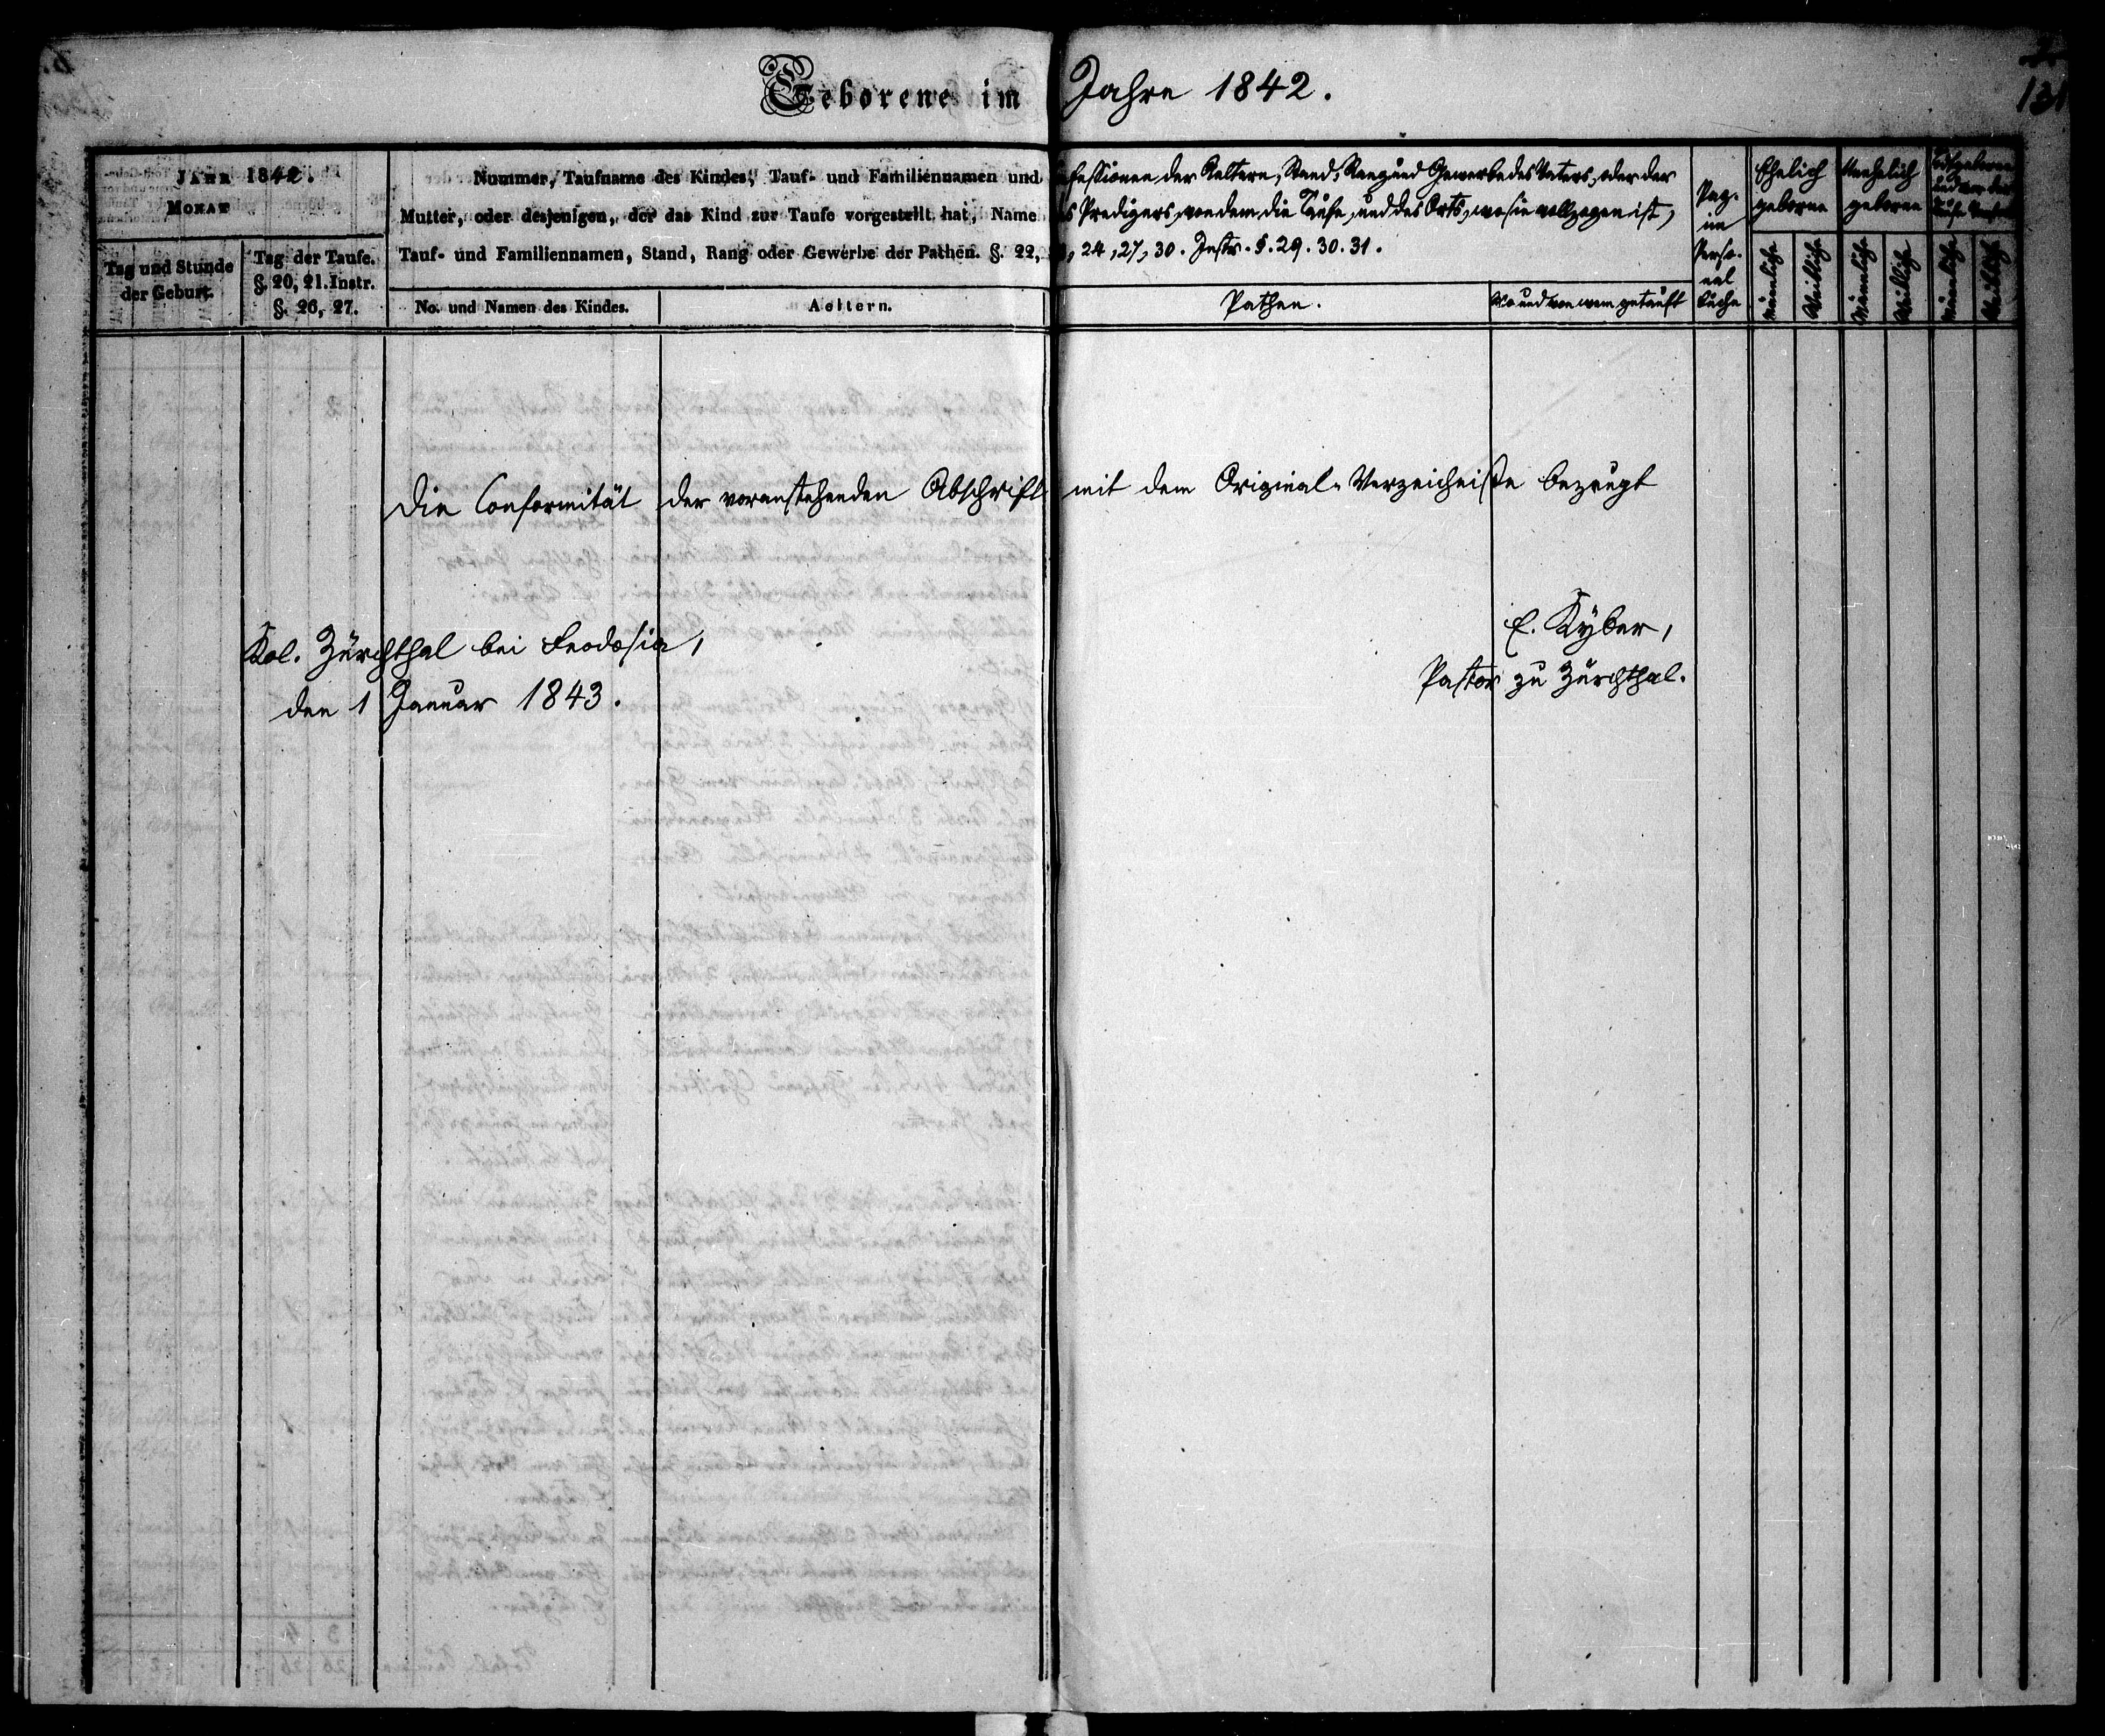 Geborene im Jahre 1842.
131
JAHR 1842.
MONAT
Tag und Stunde
der Geburt.
Tag der Taufe.
§. 20, 21. Instr.
§. 26, 27.
Nummer, Taufname des Kindes, Tauf- und Familiennamen und Confessionen der Aeltern, Stand, Rang und Gewerbe des Vaters, oder der
Mutter, oder desjenigen, der das Kind zur Taufe vorgestellt hat, Name des Predigers, von dem die Taufe, und des Orts, wo sie vollzogen ist,
Tauf- und Familiennamen, Stand, Rang oder Gewerbe der Pathen. §. 22, 23, 24, 27, 30. Instr. §. 29. 30. 31.
No. und Namen des Kindes.
Aeltern.
Pathen.
Wo und von wem getauft
Pag.
im
Perso-
nal
buche
Ehelich
geborne
Unehelich
geborne
Todtgeborne
und vor der
Taufe
Männliche
Weibliche
Männliche
Weibliche
Männliche
Weibliche
Die Conformität der voranstehenden Abschrift mit dem Original-Verzeichniße bezeugt
Kol. Zürchthal bei Feodosia,
den 1 Januar 1843.
E. Kyber,
Pastor zu Zürchthal.